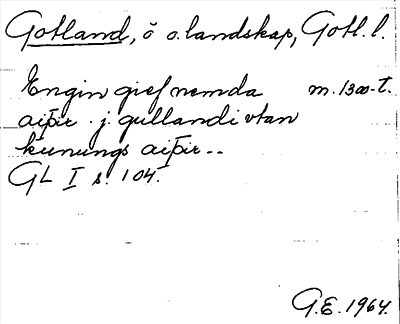 Gotland, ö o. landskap, Gotl. l.
Engin gief nemda m. 1300-t.
aiþir . j gullandi vtan
kunungs aiþir --
GL I s. 104.
G.E. 1964.